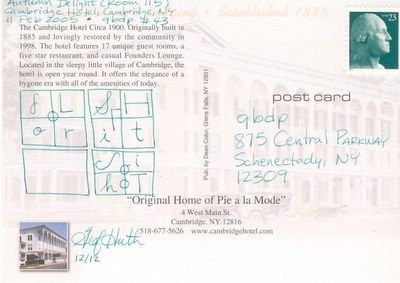 Autumn Delight (Room 115)
Cambridge Hotel, Cambridge, NY
11 Feb 2005 • qbdp #43
Established 1885
The Cambridge Hotel Circa 1900. Originally built in
1885 and lovingly restored by the community in
1998. The hotel features 17 unique guest rooms, a
five star restaurant, and casual Founders Lounge.
Located in the sleepy little village of Cambridge, the
hotel is open year round. It offers the elegance of a
bygone era with all of the amenities of today.
USA 23
post card
Pub. by Dean Color, Glens Falls, NY 12801
qbdp
875 Central Parkway
Schenectady, NY
12309
8 L S H
o r i t
S i
h T
"Original Home of Pie a la Mode"
4 West Main St.
Cambridge, NY 12816
518-677-5626 www.cambridgehotel.com
Geof Huth
12/12